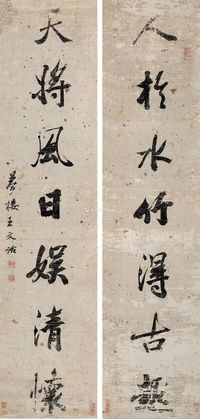 人於水竹得古
天將風日娛清懷
夢樓王文治